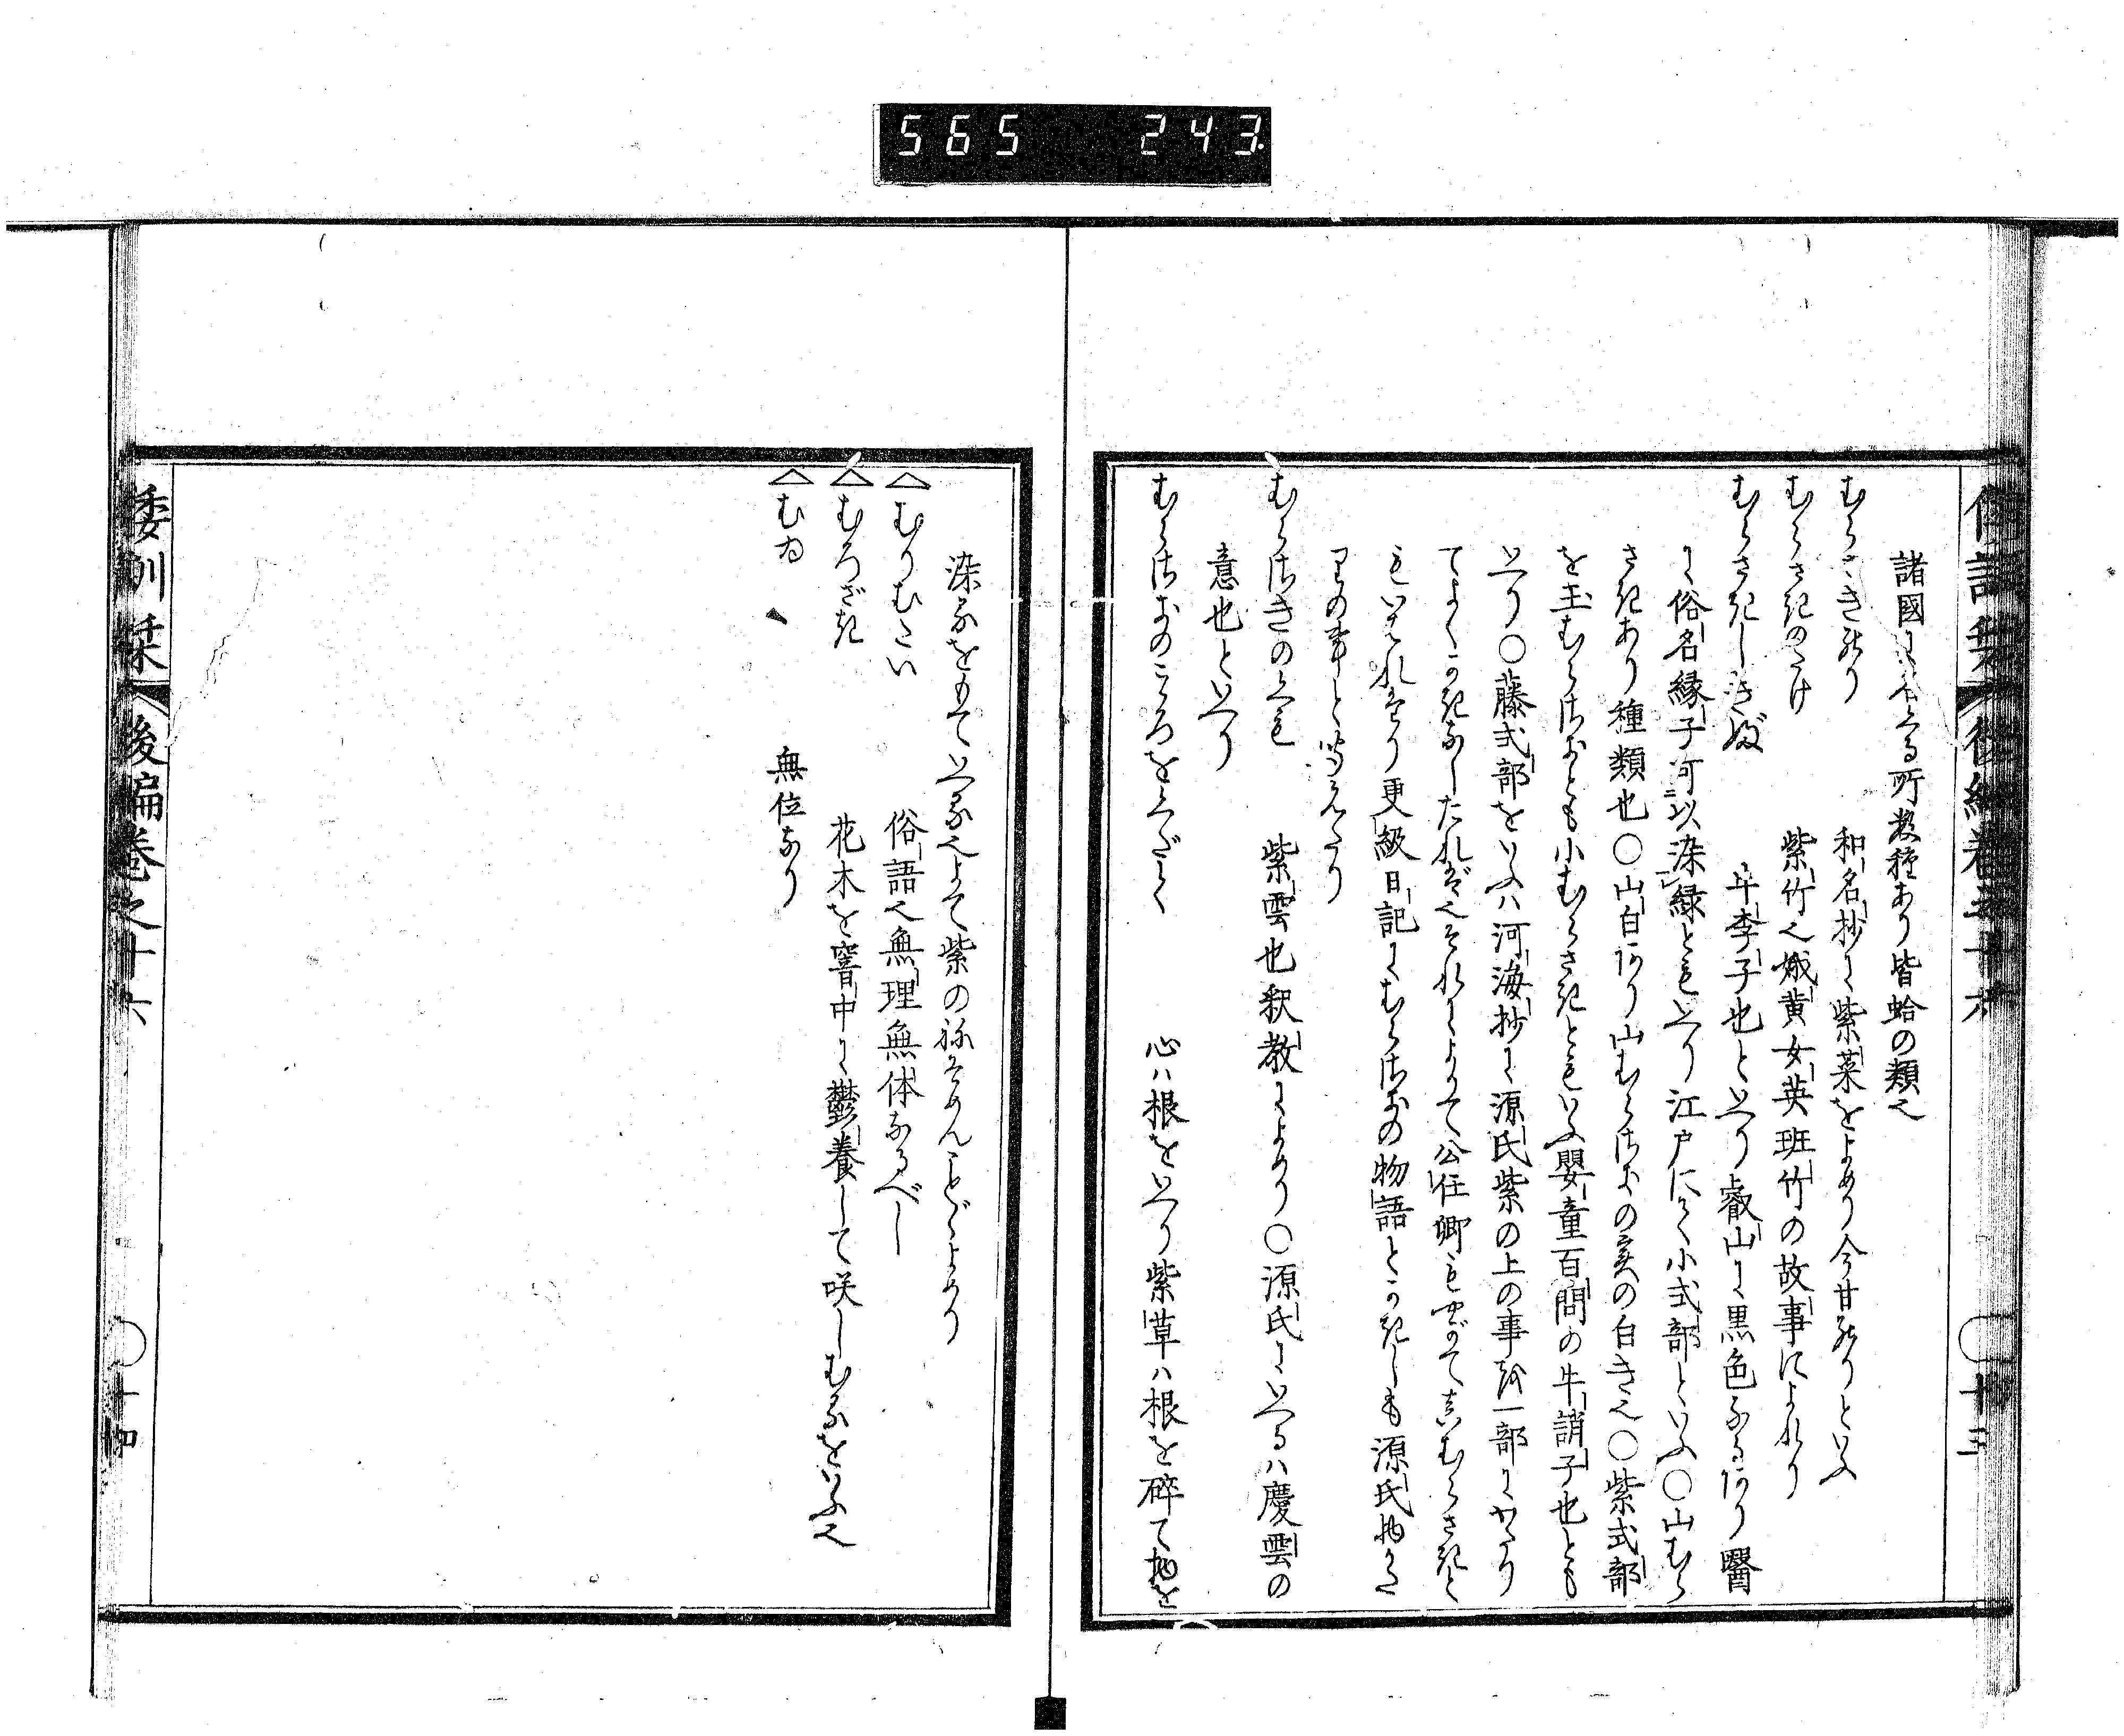 565 243.
倭訓栞 後編巻之十六 ○十三
諸國に名くる所数種あり皆蛤の類也
むらさきのり 和名抄に紫菜をよめり今甘のりといふ
むらさきのたけ 紫竹也娥黄女英班竹の故事によれり
むらさきしきぶ 牛李子也といへり叡山に黒色なるあり醫
に俗名縁子可以染緑ともいへり江戸にて小式部といふ○山むら
さきあり種類也○山白あり山むらさきの実の白き也○紫式部
を玉むらさきとも小むらさきともいふ嬰童百問の牛誚子也とも
いへり○藤式部をいふハ河海抄に源氏紫の上の事を一部に
てよくかきなしたれば也それによりて公任卿も わかむらさきと
もいはれたり更級日記にむらさきの物語とかきしも源氏物かた
りの事と聞えたり
むらさきのくも 紫雲也釈教によめり○源氏にいへるハ慶雲の
意也といへり
むらさきのこころをくだく 心ハ根をいへり紫草ハ根を碎て物を
染るをもていへる也よて紫の ねそめんことゞよめり
むりむたい 俗語也無理無体なるべし
むろざき 花木を窨中に鬱養して咲しむるをいふ也
むゐ 無位なり
倭訓栞 後編巻之十六 ○十四